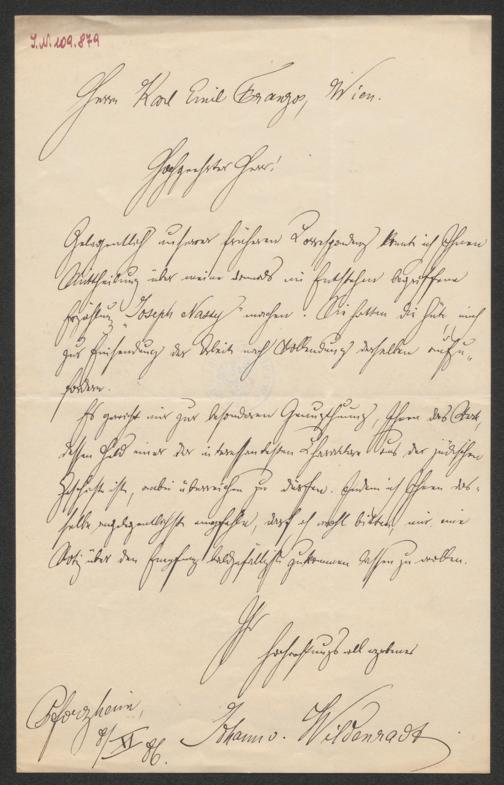 I.N. 109.879
Herrn Karl Emil Franzos, Wien.
Hochgeehrter Herr!
Gelegentlich unserer früheren Correspondenz konnte ich Ihnen
Mittheilung über meine damals im Entstehen begriffene
Erzählung "Joseph Nassy" machen. Sie hatten die Güte, mich
zur Einsendung der Arbeit nach Vollendung derselben aufzu-
fordern.
Es gereicht mir zur besonderen Genugthuung, Ihnen das Werk,
dessen Held einer der interessantesten Charaktere aus der jüdischen
Geschichte ist, anbei überreichen zu dürfen. Indem ich Ihnen das-
selbe angelegentlichst empfehle, darf ich wohl bitten, mir eine
Notiz über den Empfang baldgefälligst zukommen lassen zu wollen.
Ihr
hochachtungsvoll ergebener
Johann v. Wildenradt
Pforzheim,
8/XI 86.